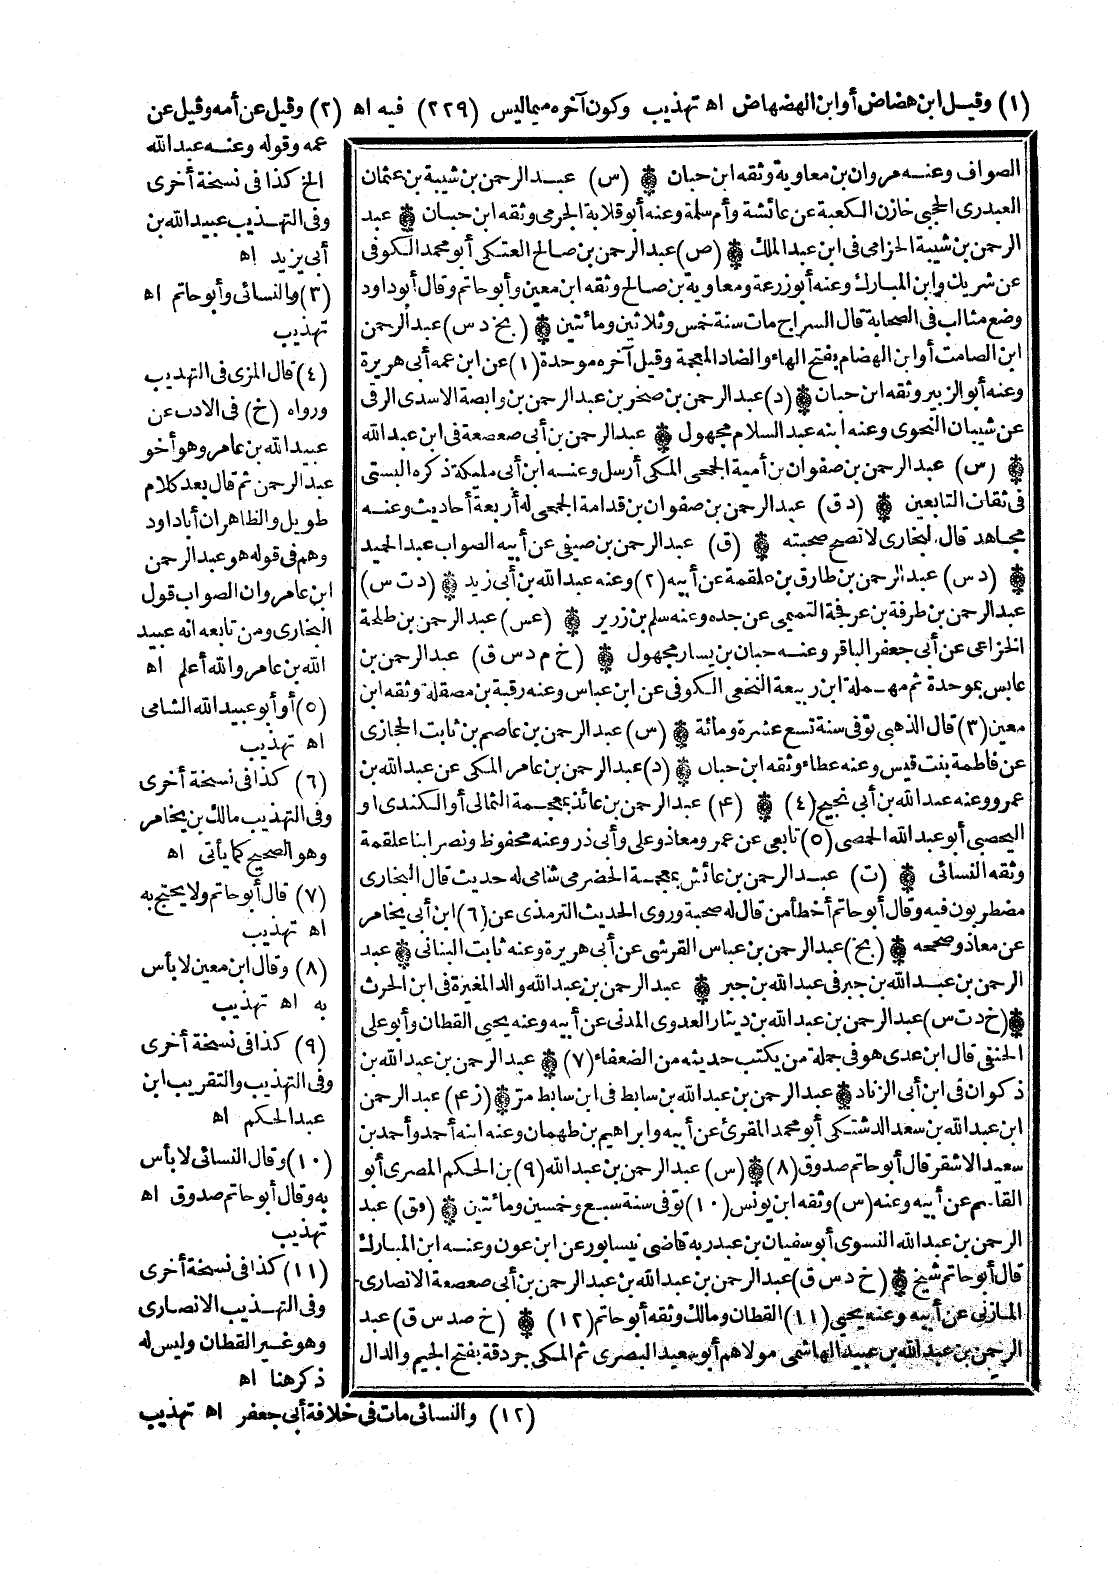 (١) وقيل ابن هضاض أو ابن الهضهاض اه تهذيب وكون آخره ميما ليس (٢٢٩) فيه اه (٢) وقيل عن أمه وقيل عن
عمه وقوله وعنه عبد الله
الخ كذا في نسخة أخرى
وفي التهذيب عبيد الله بن
أبي يزيد اه
(٣) والنسائي وأبو حاتم اه
تهذيب
(٤) قال المزي في التهذيب
ورواه (خ) في الادب عن
عبيد الله بن عامر وهو أخو
عبد الرحمن ثم قال بعد كلام
طويل والظاهر ان أبا داود
وهم في قوله هو عبد الرحمن
ابن عامر وان الصواب قول
البخاري ومن تابعه انه عبيد
الله بن عامر والله أعلم اه
(٥) أو أبو عبيد الله الشامي
اه تهذيب
(٦) كذا في نسخة أخرى
وفي التهذيب مالك بن يخامر
وهو الصحيح كما يأتي اه
(٧) قال أبو حاتم ولا يحتج به
اه تهذيب
(٨) وقال ابن معين لا بأس
به اه تهذيب
(٩) كذا في نسخة أخرى
وفي التهذيب والتقريب ابن
عبد الحكم اه
(١٠) وقال النسائي لا بأس
به وقال أبو حاتم صدوق اه
تهذيب
(١١) كذا في نسخة أخرى
وفي التهذيب الانصاري
وهو غير القطان وليس له
ذكر هنا اه
الصواف وعنه مروان بن معاوية وثقه ابن حبان ۞ (س) عبد الرحمن بن شيبة بن عثمان
العبدري الحجبي خازن الكعبة عن عائشة وأم سلمة وعنه أبو قلابة الجرمي وثقه ابن حبان ۞ عبد
الرحمن بن شيبة الحزامي في ابن عبد الملك ۞ (ص) عبد الرحمن بن صالح العتكي أبو محمد الكوفي
عن شريك وابن المبارك وعنه أبو زرعة ومعاوية بن صالح وثقه ابن معين وأبو حاتم وقال أبو داود
وضع مثالب في الصحابة قال السراج مات سنة خمس وثلاثين ومائتين ۞ (بخ د س) عبد الرحمن
ابن الصامت أو ابن الهضام بفتح الهاء والضاد المعجمة وقيل آخره موحدة (١) عن ابن عمه أبي هريرة
وعنه أبو الزبير وثقه ابن حبان ۞ (د) عبد الرحمن بن صخر بن عبد الرحمن بن وابصة الاسدي الرقي
عن شيبان النحوي وعنه ابنه عبد السلام مجهول ۞ عبد الرحمن بن أبي صعصعة في ابن عبد الله
۞ (س) عبد الرحمن بن صفوان بن أمية الجمحي المكي أرسل وعنه ابن أبي مليكة ذكره البستي
في ثقات التابعين ۞ (د ق) عبد الرحمن بن صفوان بن قدامة الجمحي له أربعة أحاديث وعنه
مجاهد قال البخاري لا تصح صحبته ۞ (ق) عبد الرحمن بن صيفي عن أبيه الصواب عبد الحميد
۞ (د س) عبد الرحمن بن طارق بن علقمة عن أبيه (٢) وعنه عبد الله بن أبي زيد ۞ (د ت س)
عبد الرحمن بن طرفة بن عرفجة التميمي عن جده وعنه سلم بن زرير ۞ (عس) عبد الرحمن بن طلحة
الخزاعي عن أبي جعفر الباقر وعنه حبان بن يسار مجهول ۞ (خ م د س ق) عبد الرحمن بن
عابس بموحدة ثم مهملة ابن ربيعة النخعي الكوفي عن ابن عباس وعنه رقبة بن مصقلة وثقه ابن
معين (٣) قال الذهبي توفى سنة تسع عشرة ومائة ۞ (س) عبد الرحمن بن عاصم بن ثابت الحجازي
عن فاطمة بنت قيس وعنه عطاء وثقه ابن حبان ۞ (د) عبد الرحمن بن عامر المكي عن عبد الله بن
عمرو وعنه عبد الله بن أبي نجيح (٤) ۞ (٤) عبد الرحمن بن عائذ بمعجمة الثمالي أو الكندي او
اليحصبي أبو عبد الله الحمصي (٥) تابعي عن عمر ومعاذ وعلي وأبي ذر وعنه محفوظ ونصر ابنا علقمة
وثقه النسائي ۞ (ت) عبد الرحمن بن عائش بمعجمة الحضرمي شامي له حديث قال البخاري
مضطربون فيه وقال أبو حاتم أخطأ من قال له صحبة وروى الحديث الترمذي عن (٦) ابن أبي يخامر
عن معاذ وصححه ۞ (بخ) عبد الرحمن بن عباس القرشي عن أبي هريرة وعنه ثابت البناني ۞ عبد
الرحمن بن عبد الله بن جبر في عبد الله بن جبر ۞ عبد الرحمن بن عبد الله والد المغيرة في ابن الحرث
۞ (خ د ت س) عبد الرحمن بن عبد الله بن دينار العدوي المدني عن أبيه وعنه يحيى القطان وأبو علي
الحنفي قال ابن عدي هو في جملة من يكتب حديثه من الضعفاء (٧) ۞ عبد الرحمن بن عبد الله بن
ذكوان في ابن أبي الزناد ۞ عبد الرحمن بن عبد الله بن سابط في ابن سابط مر ۞ (ز ٤) عبد الرحمن
ابن عبد الله بن سعد الدشتكي أبو محمد المقرئ عن أبيه وابراهيم بن طهمان وعنه ابنه أحمد وأحمد بن
سعيد الاشقر قال أبو حاتم صدوق (٨) ۞ (س) عبد الرحمن بن عبد الله (٩) بن الحكم المصري أبو
القاسم عن أبيه وعنه (س) وثقه ابن يونس (١٠) توفى سنة سبع وخمسين ومائتين ۞ (فق) عبد
الرحمن بن عبد الله النسوي أبو سفيان بن عبد ربه قاضي نيسابور عن ابن عون وعنه ابن المبارك
قال أبو حاتم شيخ ۞ (خ د س ق) عبد الرحمن بن عبد الله بن عبد الرحمن بن أبي صعصعة الانصاري
المازني عن أبيه وعنه يحيى (١١) القطان ومالك وثقه أبو حاتم (١٢) ۞ (خ صد س ق) عبد
الرحمن بن عبد الله بن عبيد الهاشمي مولاهم أبو سعيد البصري ثم المكي جردقة بفتح الجيم والدال
(١٢) والنسائي مات في خلافة أبي جعفر اه تهذيب